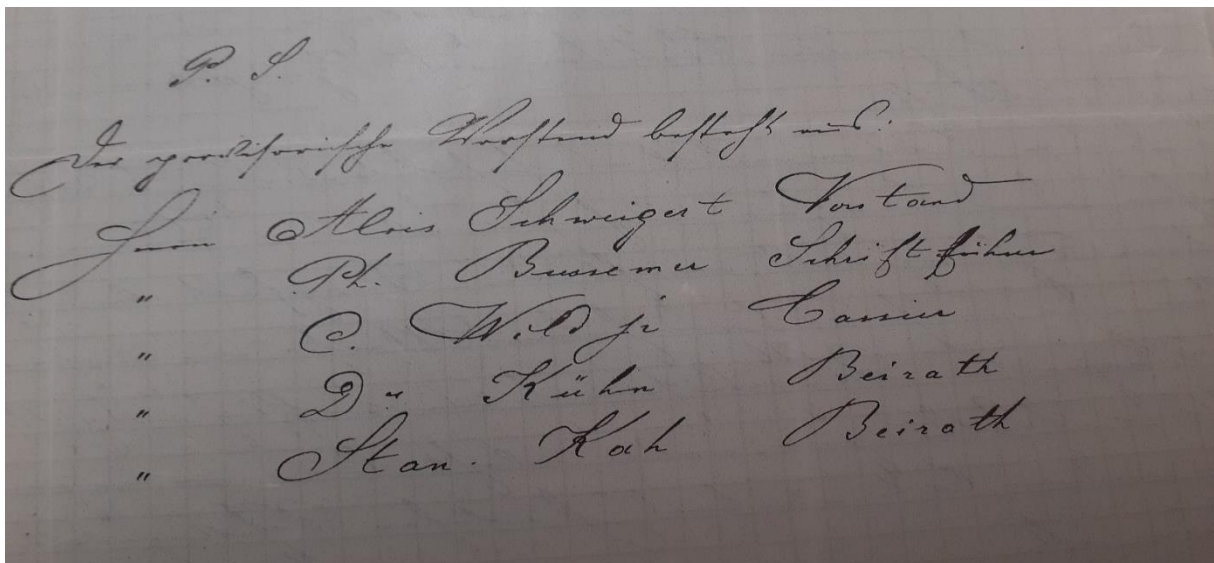 P. S.
Der provisorische Vorstand besteht aus:
Herrn Alois Schweigert Vorstand
" Ph. Bussemer Schriftführer
" C. Wild jr Cassier
" Dr Kühn Beirath
" Stan. Koch Beirath